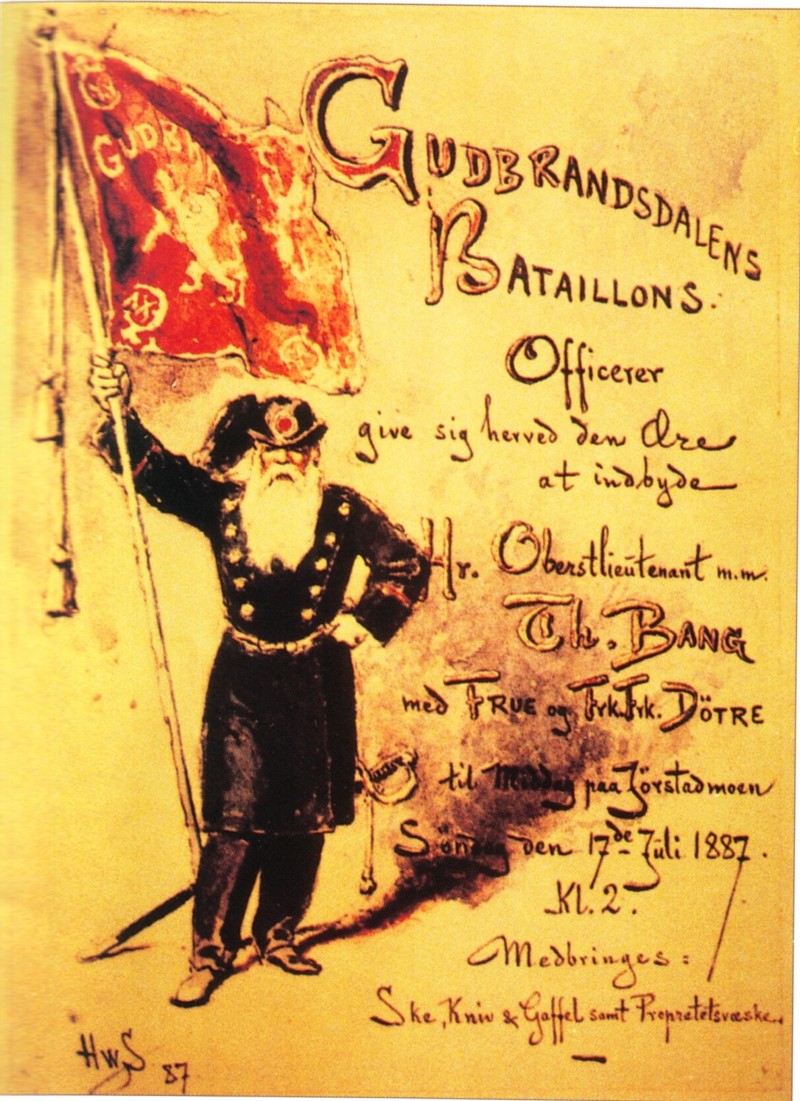 GUDB
GUDBRANDSDALENS
BATAILLONS.
Officerer
give sig herved den Ære
at indbyde
Hr. Oberstlieutenant m.m.
Th. BANG
med FRUE og Frk.Frk. DÖTRE
til Middag paa Jörstadmoen
Söndag den 17de Juli 1887.
Kl. 2.
Medbringes:
Ske, Kniv & Gaffel samt Propretetsvæske.
HWS 87